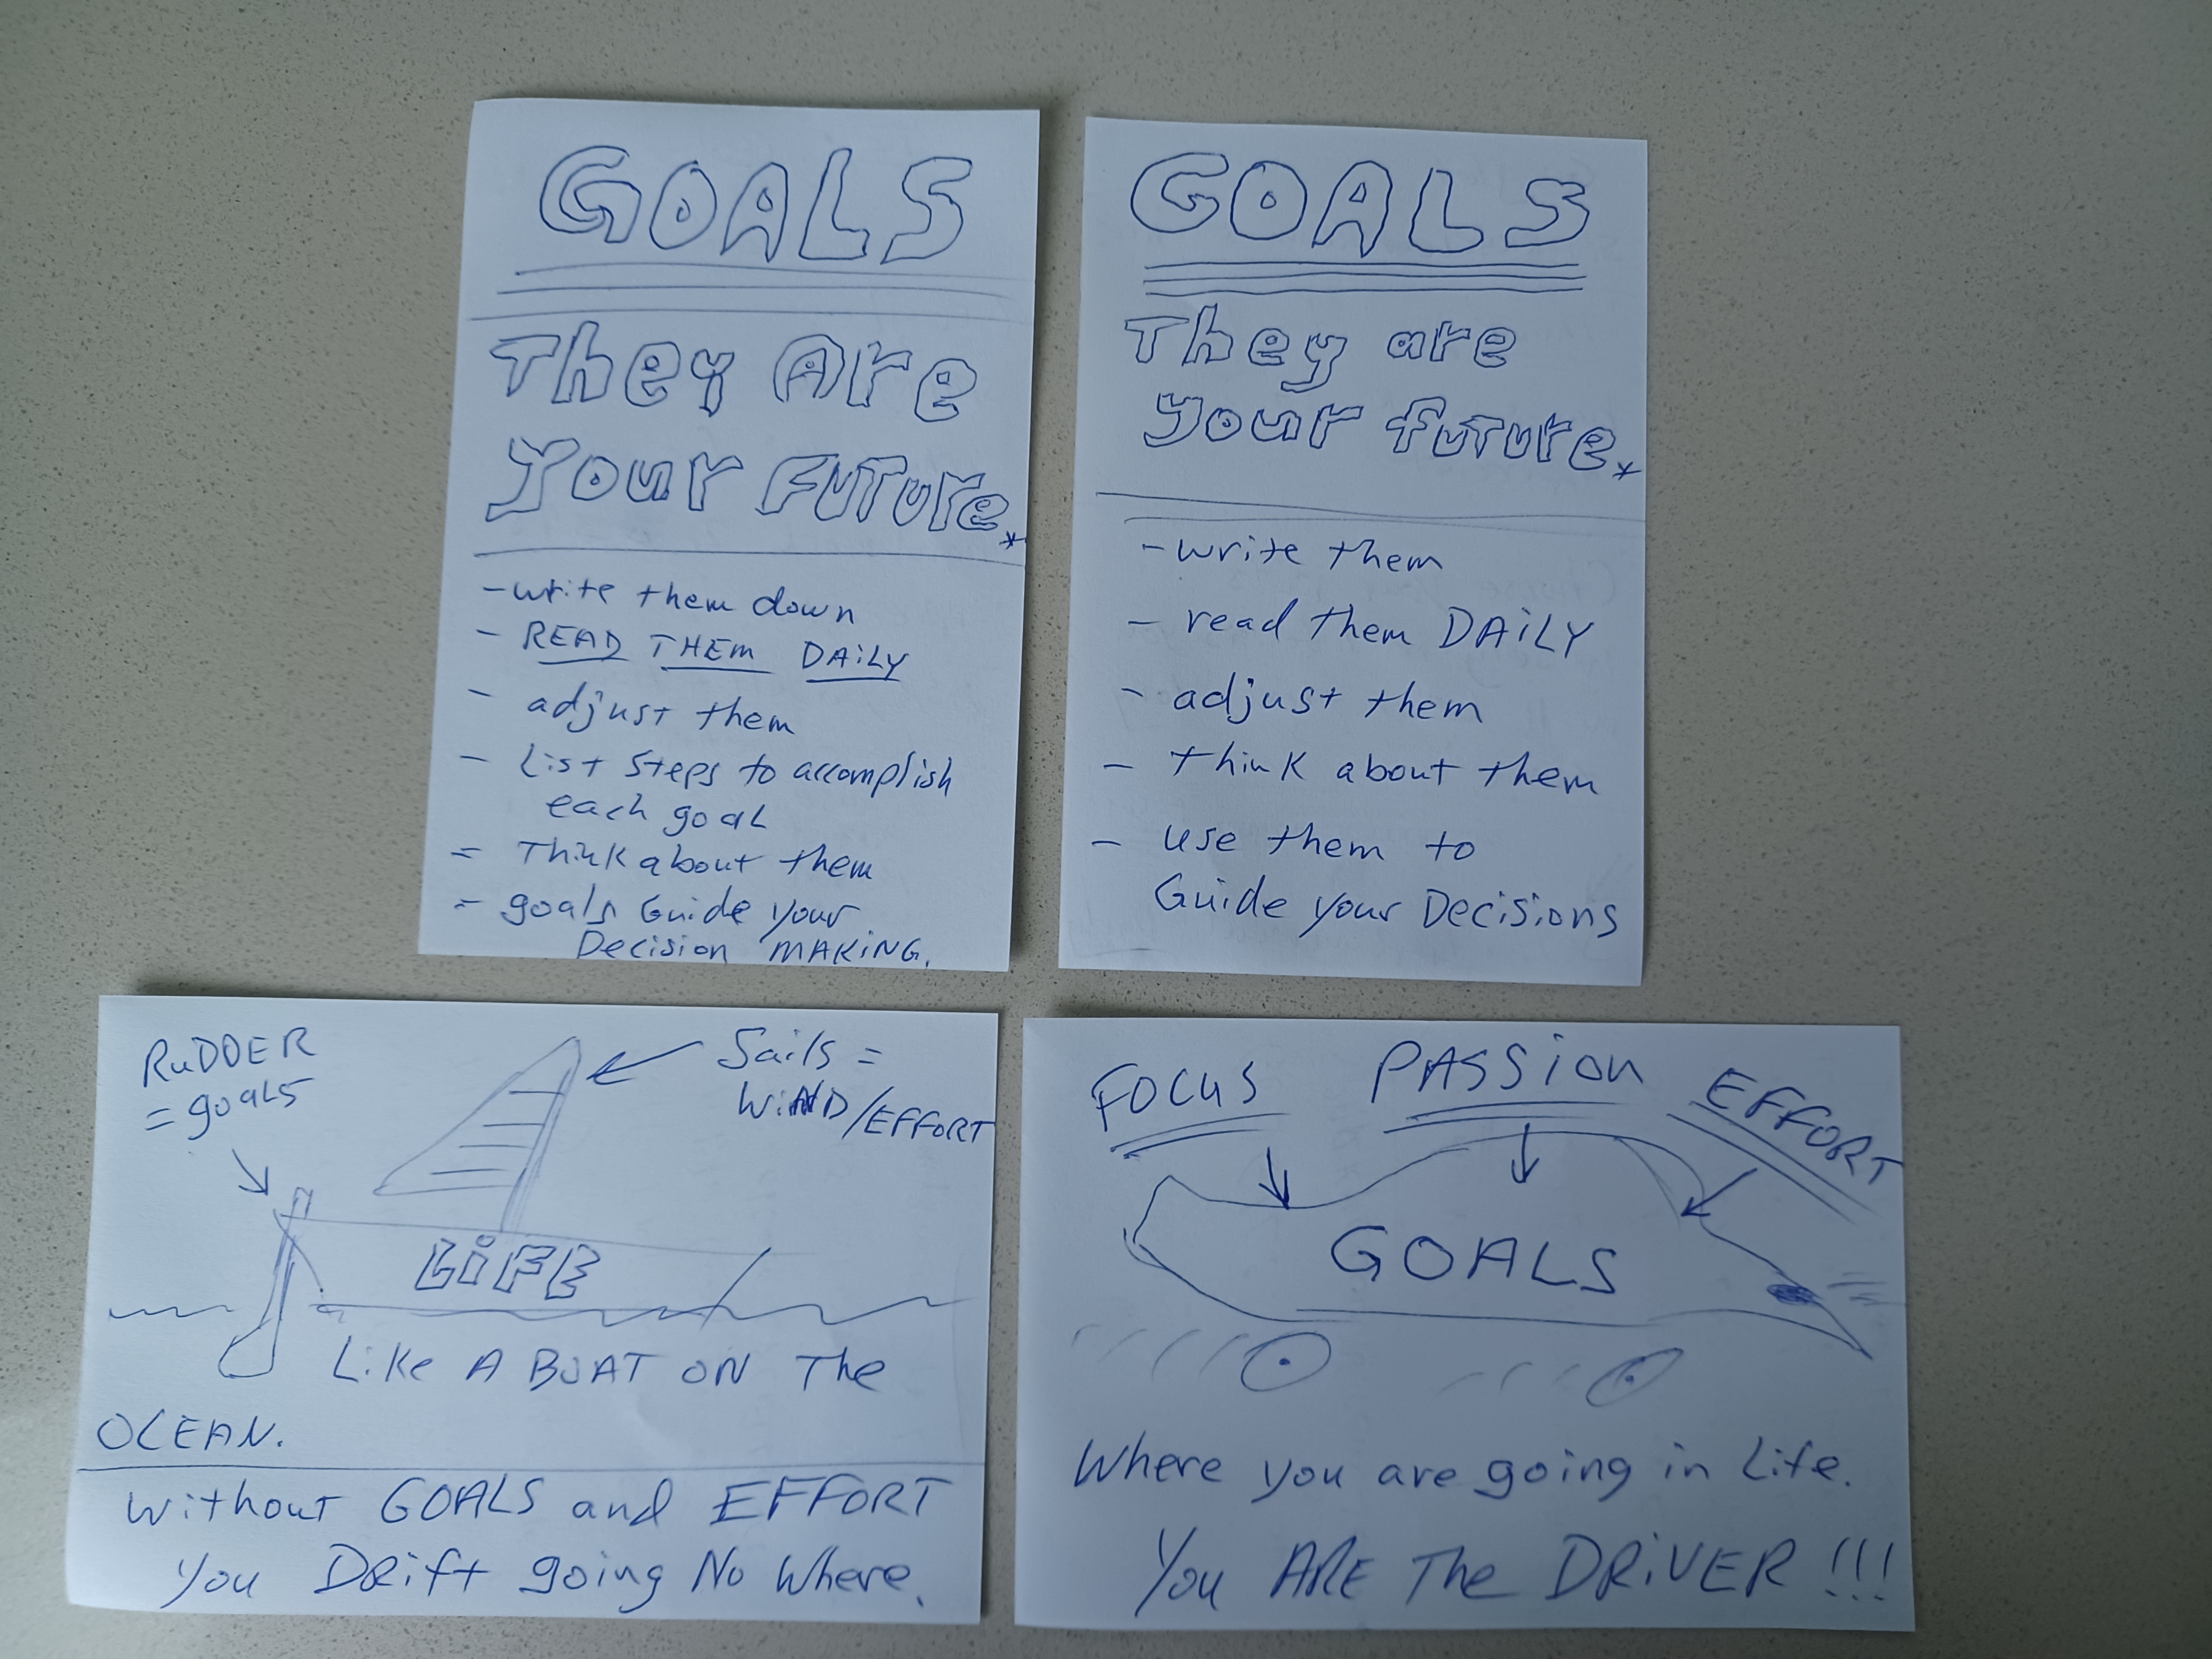 GOALS
They Are
Your FuTure.*
- write them down
- READ THEM DAiLY
- adjust them
- List Steps to accomplish
each goal
= Think about them
= goals Guide your
Decision MAKiNG.
GOALS
They are
your fuTure.*
- write them
- read them DAiLY
- adjust them
- think about them
- use them to
Guide your Decisions
RuDDER
= goals
Sails =
WiND/EFFORT
LiFE
Like A BOAT ON The
OCEAN.
without GOALS and EFFORT
you Drift going No Where.
FOCUS
PASSiON
EFFORT
GOALS
Where you are going in Life.
You ARE The DRiVER !!!